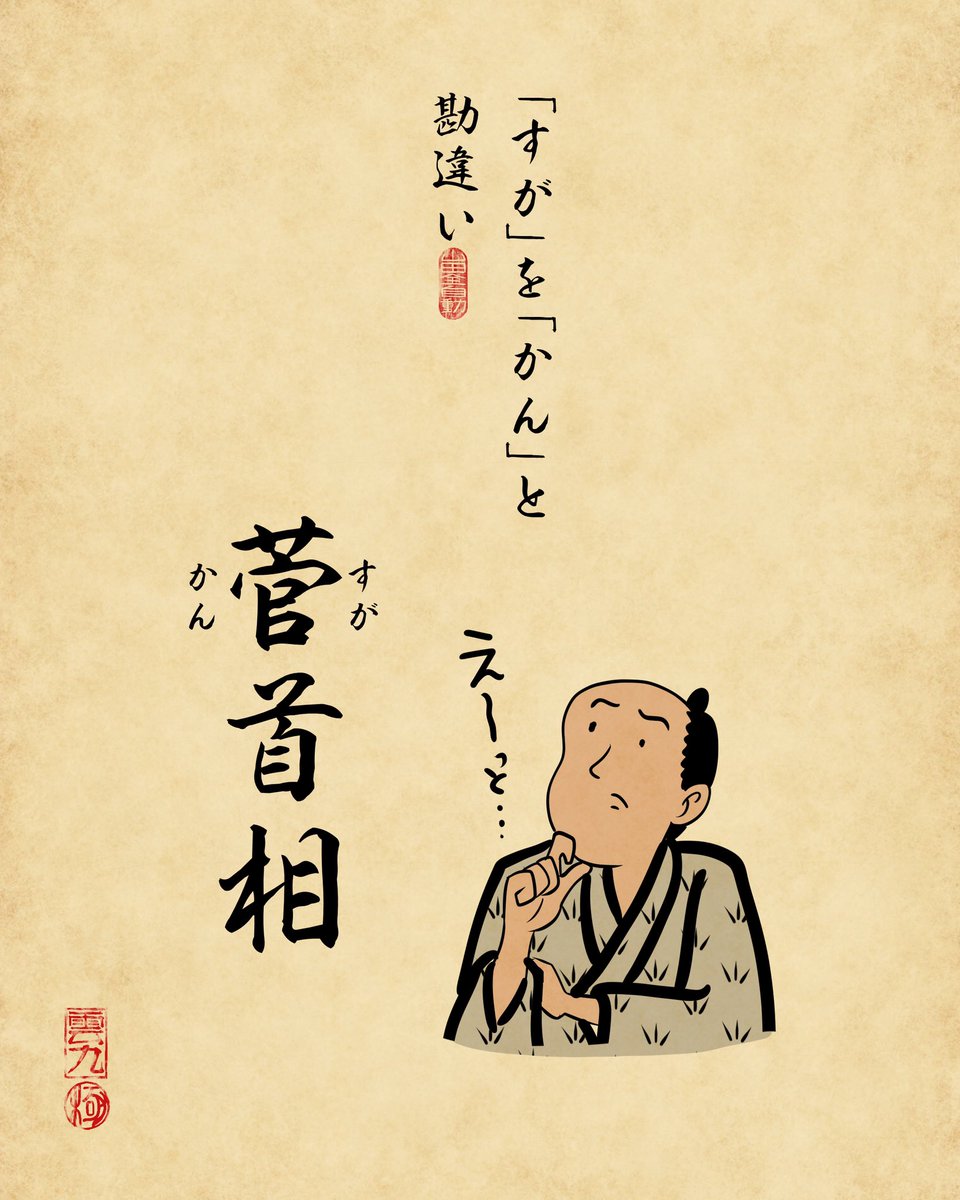 「すが」を「かん」と
勘違い
えーっと…
すが
菅首相
かん
雲九
極